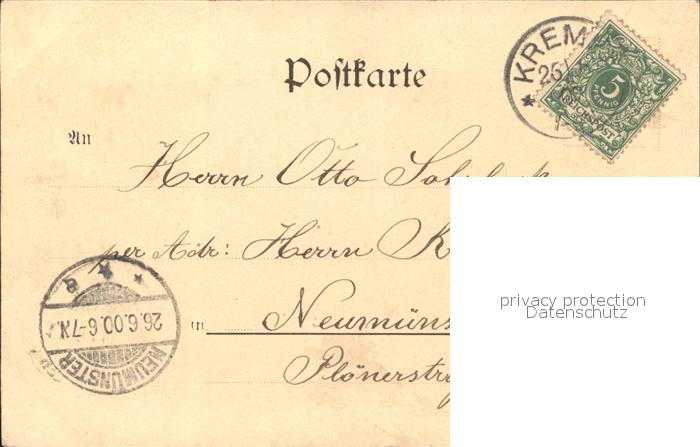 Postkarte
KREM
25
5
PFENNIG
REICHSPOST
An
Herrn Otto
per Adr: Herrn K
Neumüns
Plönerstr
a
26.6.00.6-7N.
NEUMÜNSTER
privacy protection
Datenschutz